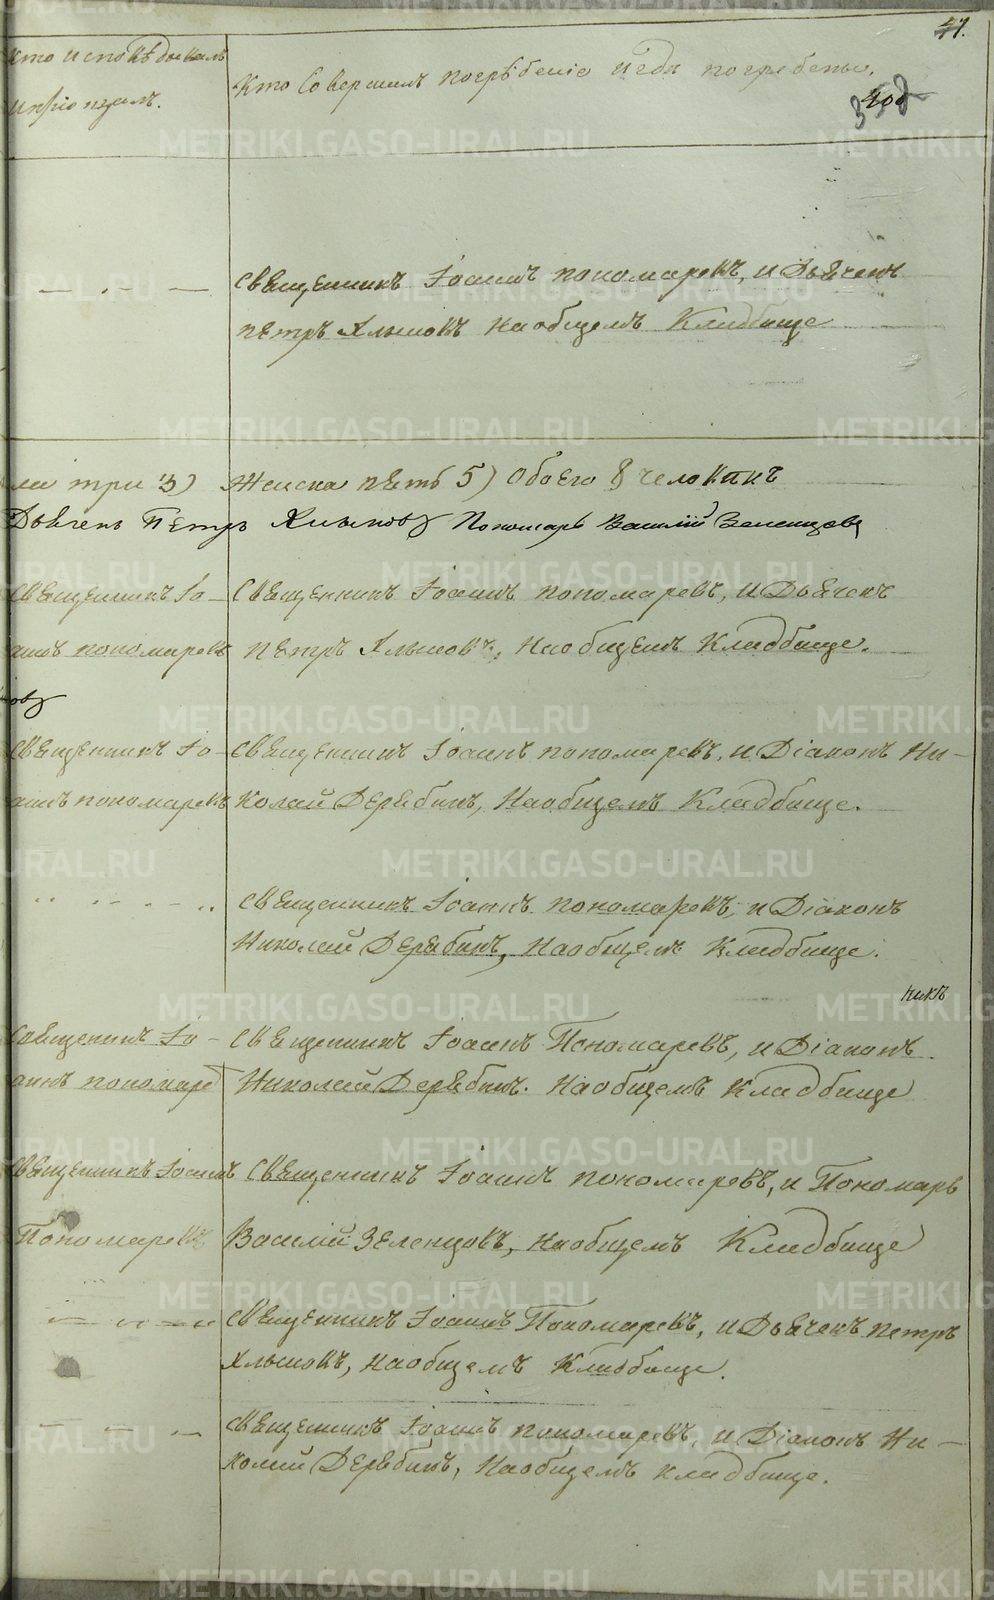 47.
Кто исповѣдовалъ
и пріобщалъ.
Кто Совершалъ погрѣбеніе и гдѣ погребены.
Священникъ Іоаннъ пономаревъ, и Дьячекъ
пѣтръ Хлыновъ На общемъ Кладбище
ла три 3) Женска пѣть 5) Обоего 8 человѣкъ
Дьячекъ Пѣтръ Хлыновъ Пономарь Василій Зеленцовъ
Священникъ Іо-
аннъ пономаревъ
Священникъ Іоаннъ пономаревъ, и Дьячекъ
пѣтръ Хлыновъ, На общемъ Кладбище.
овъ
Священникъ Іо-
аннъ пономаревъ
Священникъ Іоаннъ пономаревъ, и Діаконъ Ни-
колай Дерябинъ, На общемъ Кладбище.
Священникъ Іоаннъ пономаревъ, и Діаконъ
Николай Дерябинъ, На общемъ Кладбище.
Священникъ Іо-
аннъ пономаре
Священникъ Іоаннъ Пономаревъ, и Діаконъ
Николай Дерябинъ. На общемъ Кладбище
Священникъ Іоаннъ
Пономаревъ
Священникъ Іоаннъ пономаревъ, и Пономарь
Василій Зеленцовъ, На общемъ Кладбище
Священникъ Іоаннъ Пономаревъ, и Дьячекъ пѣтръ
Хлыновъ, На общемъ Кладбище.
Священникъ Іоаннъ пономаревъ, и Діаконъ Ни-
колай Дерябинъ, На общемъ кладбище.
METRIKI.GASO-URAL.RU